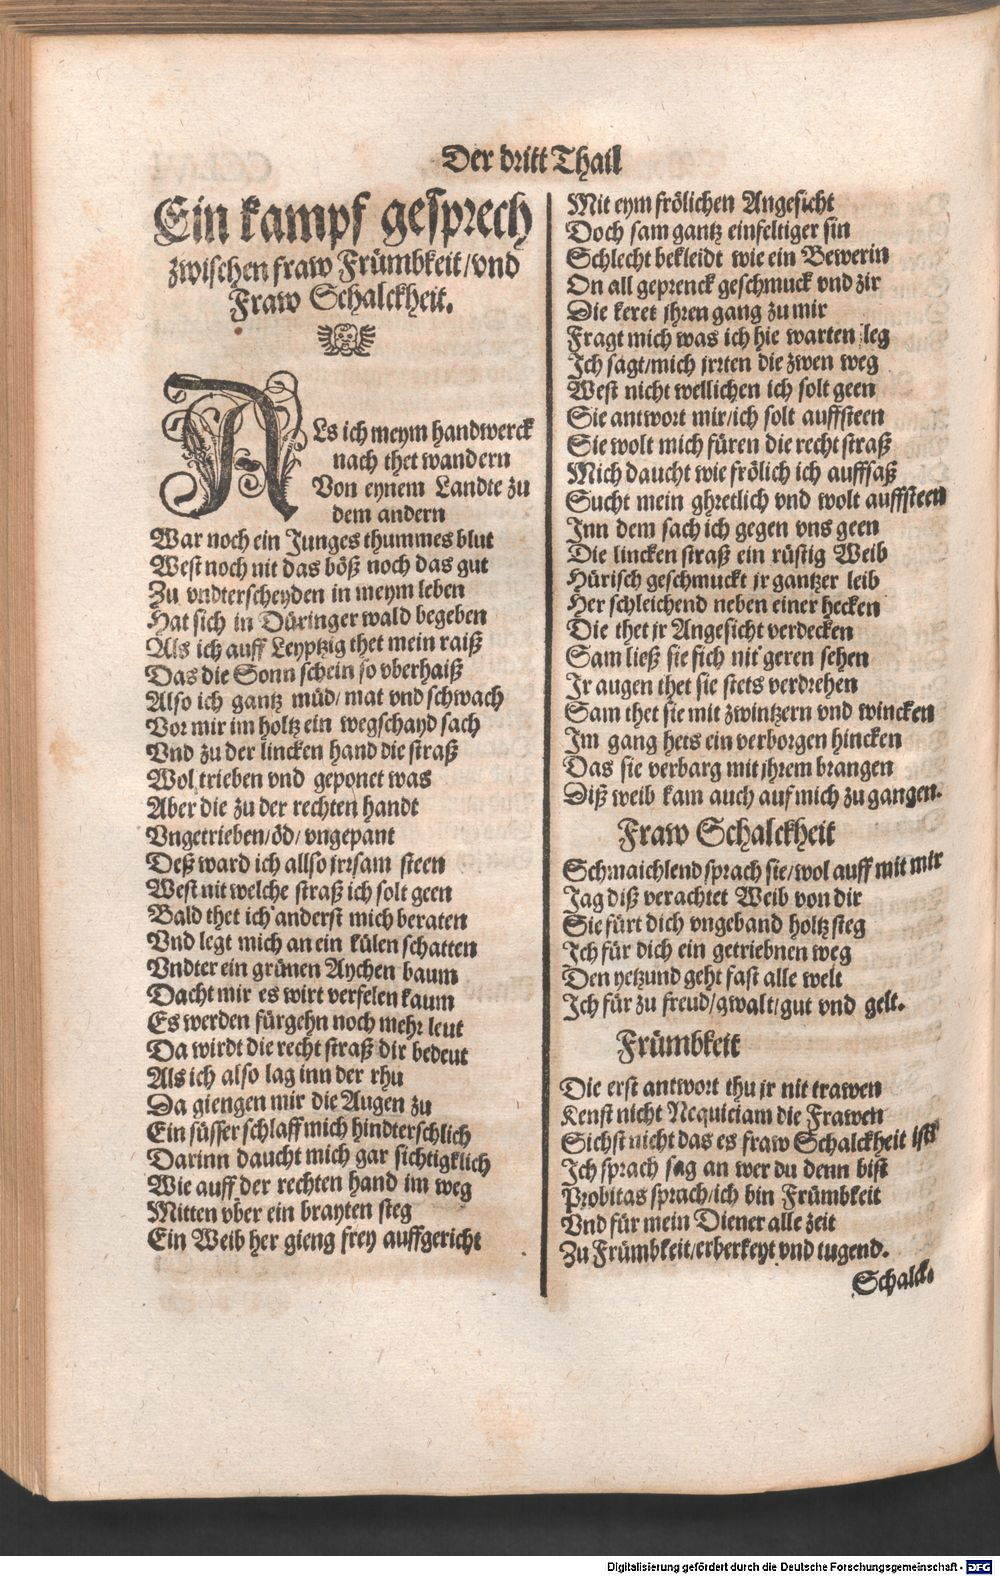 Der dritt Thail
Ein kampf gesprech
zwischen fraw Frümbkeit/vnd
Fraw Schalckheit.
ALs ich meym handwerck
nach thet wandern
Von eynem Landte zu
dem andern
War noch ein Junges thummes blut
West noch nit das böß noch das gut
Zu vndterscheyden in meym leben
Hat sich in Düringer wald begeben
Als ich auff Leyptzig thet mein raiß
Das die Sonn schein so vberhaiß
Also ich gantz müd/mat vnd schwach
Vor mir im holtz ein wegschayd sach
Vnd zu der lincken hand die straß
Wol trieben vnd geponet was
Aber die zu der rechten handt
Vngetrieben/öd/vngepant
Deß ward ich allso jrrsam steen
West nit welche straß ich solt geen
Bald thet ich anderst mich beraten
Vnd legt mich an ein külen schatten
Vndter ein grünen Aychen baum
Dacht mir es wirt verfelen kaum
Es werden fürgehn noch mehr leut
Da wirdt die recht straß dir bedeut
Als ich also lag inn der rhu
Da giengen mir die Augen zu
Ein süsser schlaff mich hindterschlich
Darinn daucht mich gar sichtigklich
Wie auff der rechten hand im weg
Mitten vber ein brayten steg
Ein Weib her gieng frey auffgericht
Mit eym frölichen Angesicht
Doch sam gantz einfeltiger sin
Schlecht bekleidt wie ein Bewerin
On all geprenck geschmuck vnd zir
Die keret jhren gang zu mir
Fragt mich was ich hie warten leg
Ich sagt/mich jrrten die zwen weg
West nicht wellichen ich solt geen
Sie antwort mir/ich solt auffsteen
Sie wolt mich füren die recht straß
Mich daucht wie frölich ich auffsaß
Sucht mein ghretlich vnd wolt auffsteen
Inn dem sach ich gegen vns geen
Die lincken straß ein rüstig Weib
Hürisch geschmuckt jr gantzer leib
Her schleichend neben einer hecken
Die thet jr Angesicht verdecken
Sam ließ sie sich nit geren sehen
Ir augen thet sie stets verdrehen
Sam thet sie mit zwintzern vnd wincken
Im gang hets ein verborgen hincken
Das sie verbarg mit jhrem brangen
Diß weib kam auch auf mich zu gangen.
Fraw Schalckheit
Schmaichlend sprach sie/wol auff mit mir
Jag diß verachtet Weib von dir
Sie fürt dich vngeband holtz steg
Ich für dich ein getriebnen weg
Den yetzund geht fast alle welt
Ich für zu freud/gwalt/gut vnd gelt.
Frümbkeit
Die erst antwort thu jr nit trawen
Kenst nicht Nequiciam die Frawen
Sichst nicht das es fraw Schalckheit ist
Ich sprach sag an wer du denn bist
Probitas sprach/ich bin Frümbkeit
Vnd für mein Diener alle zeit
Zu Frümbkeit/erberkeyt vnd tugend.
Schalck.
Digitalisierung gefördert durch die Deutsche Forschungsgemeinschaft - DFG